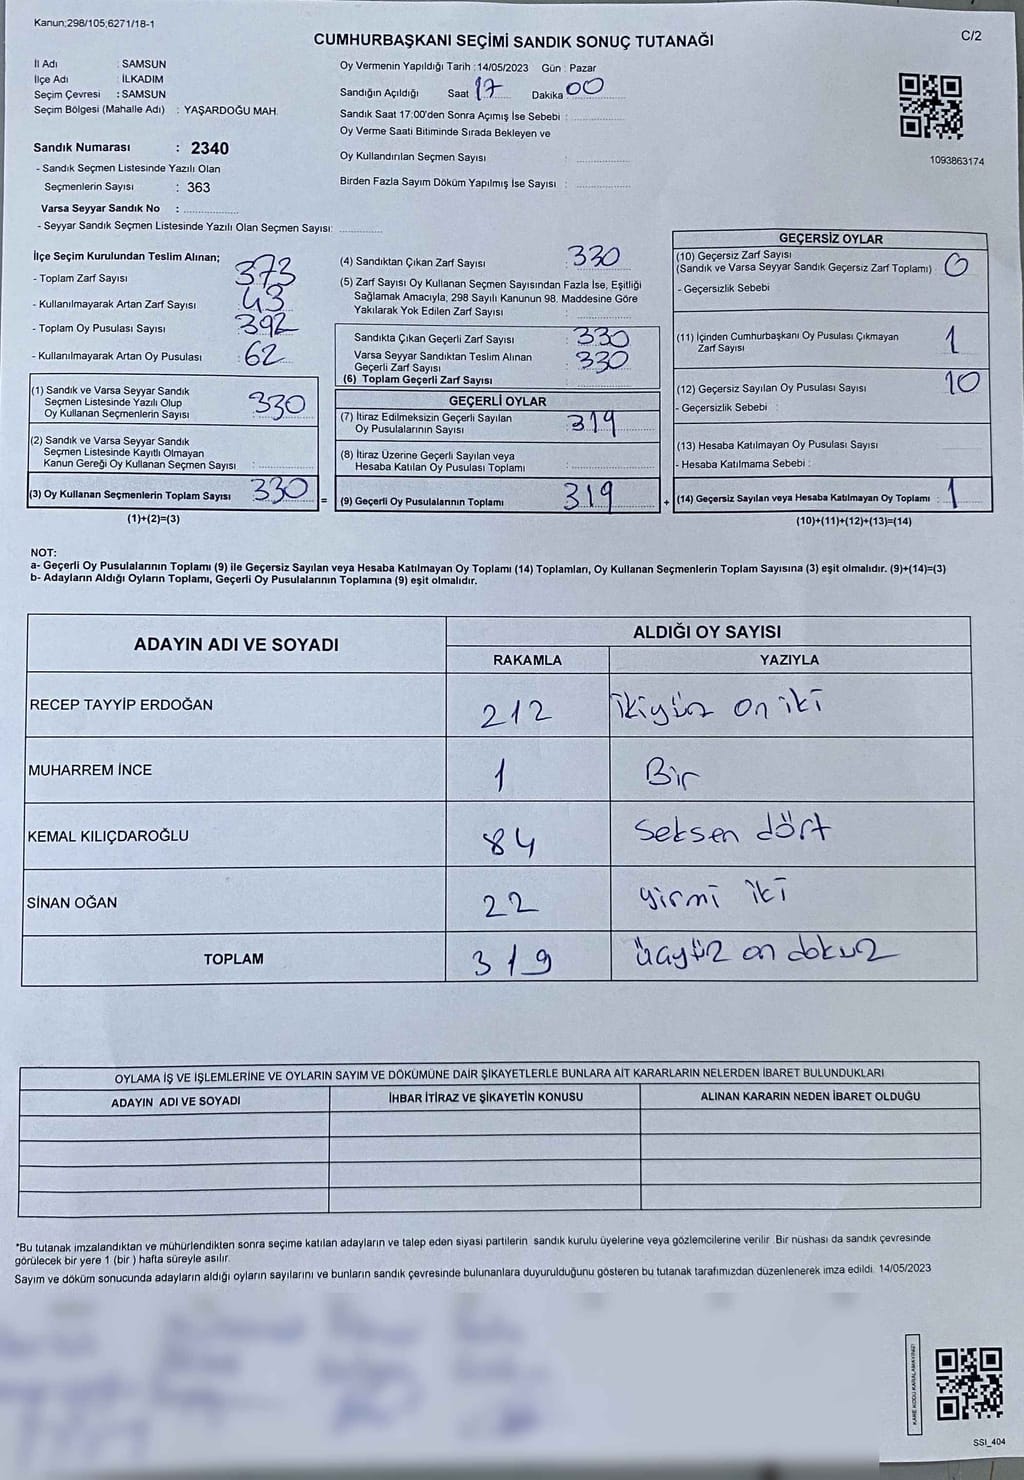 Kanun;298/105,6271/18-1
C/2
CUMHURBAŞKANI SEÇİMİ SANDIK SONUÇ TUTANAĞI
İl Adı : SAMSUN
İlçe Adı : İLKADIM
Seçim Çevresi : SAMSUN
Seçim Bölgesi (Mahalle Adı) : YAŞARDOĞU MAH.
Sandık Numarası : 2340
- Sandık Seçmen Listesinde Yazılı Olan
Seçmenlerin Sayısı : 363
Varsa Seyyar Sandık No :
- Seyyar Sandık Seçmen Listesinde Yazılı Olan Seçmen Sayısı:
Oy Vermenin Yapıldığı Tarih :14/05/2023 Gün : Pazar
Sandığın Açıldığı Saat 17 Dakika 00
Sandık Saat 17:00'den Sonra Açımış İse Sebebi :
Oy Verme Saati Bitiminde Sırada Bekleyen ve
Oy Kullandırılan Seçmen Sayısı :
Birden Fazla Sayım Döküm Yapılmış İse Sayısı :
1093863174
İlçe Seçim Kurulundan Teslim Alınan;
- Toplam Zarf Sayısı 373
- Kullanılmayarak Artan Zarf Sayısı 43
- Toplam Oy Pusulası Sayısı 392
- Kullanılmayarak Artan Oy Pusulası 62
(1) Sandık ve Varsa Seyyar Sandık
Seçmen Listesinde Yazılı Olup
Oy Kullanan Seçmenlerin Sayısı 330
(2) Sandık ve Varsa Seyyar Sandık
Seçmen Listesinde Kayıtlı Olmayan
Kanun Gereği Oy Kullanan Seçmen Sayısı :
(3) Oy Kullanan Seçmenlerin Toplam Sayısı 330 =
(1)+(2)=(3)
(4) Sandıktan Çıkan Zarf Sayısı : 330
(5) Zarf Sayısı Oy Kullanan Seçmen Sayısından Fazla İse, Eşitliği
Sağlamak Amacıyla, 298 Sayılı Kanunun 98. Maddesine Göre
Yakılarak Yok Edilen Zarf Sayısı :
Sandıkta Çıkan Geçerli Zarf Sayısı : 330
Varsa Seyyar Sandıktan Teslim Alınan 330
Geçerli Zarf Sayısı
(6) Toplam Geçerli Zarf Sayısı :
GEÇERLİ OYLAR
(7) İtiraz Edilmeksizin Geçerli Sayılan
Oy Pusulalarının Sayısı : 319
(8) İtiraz Üzerine Geçerli Sayılan veya
Hesaba Katılan Oy Pusulası Toplamı :
(9) Geçerli Oy Pusulalarının Toplamı 319 +
GEÇERSİZ OYLAR
(10) Geçersiz Zarf Sayısı
(Sandık ve Varsa Seyyar Sandık Geçersiz Zarf Toplamı) : 0
- Geçersizlik Sebebi :
(11) İçinden Cumhurbaşkanı Oy Pusulası Çıkmayan
Zarf Sayısı : 1
(12) Geçersiz Sayılan Oy Pusulası Sayısı : 10
- Geçersizlik Sebebi :
(13) Hesaba Katılmayan Oy Pusulası Sayısı :
- Hesaba Katılmama Sebebi :
(14) Geçersiz Sayılan veya Hesaba Katılmayan Oy Toplamı : 1
(10)+(11)+(12)+(13)=(14)
NOT:
a- Geçerli Oy Pusulalarının Toplamı (9) ile Geçersiz Sayılan veya Hesaba Katılmayan Oy Toplamı (14) Toplamları, Oy Kullanan Seçmenlerin Toplam Sayısına (3) eşit olmalıdır. (9)+(14)=(3)
b- Adayların Aldığı Oyların Toplamı, Geçerli Oy Pusulalarının Toplamına (9) eşit olmalıdır.
ADAYIN ADI VE SOYADI
ALDIĞI OY SAYISI
RAKAMLA YAZIYLA
RECEP TAYYİP ERDOĞAN 212 ikiyüz on iki
MUHARREM İNCE 1 Bir
KEMAL KILIÇDAROĞLU 84 Seksen dört
SİNAN OĞAN 22 yirmi iki
TOPLAM 319 üçyüz on dokuz
OYLAMA İŞ VE İŞLEMLERİNE VE OYLARIN SAYIM VE DÖKÜMÜNE DAİR ŞİKAYETLERLE BUNLARA AİT KARARLARIN NELERDEN İBARET BULUNDUKLARI
ADAYIN ADI VE SOYADI İHBAR İTİRAZ VE ŞİKAYETİN KONUSU ALINAN KARARIN NEDEN İBARET OLDUĞU
*Bu tutanak imzalandıktan ve mühürlendikten sonra seçime katılan adayların ve talep eden siyasi partilerin sandık kurulu üyelerine veya gözlemcilerine verilir. Bir nüshası da sandık çevresinde
görülecek bir yere 1 (bir ) hafta süreyle asılır.
Sayım ve döküm sonucunda adayların aldığı oyların sayılarını ve bunların sandık çevresinde bulunanlara duyurulduğunu gösteren bu tutanak tarafımızdan düzenlenerek imza edildi. 14/05/2023
KARE KODU KARALAMAYINIZ!
SSI_404